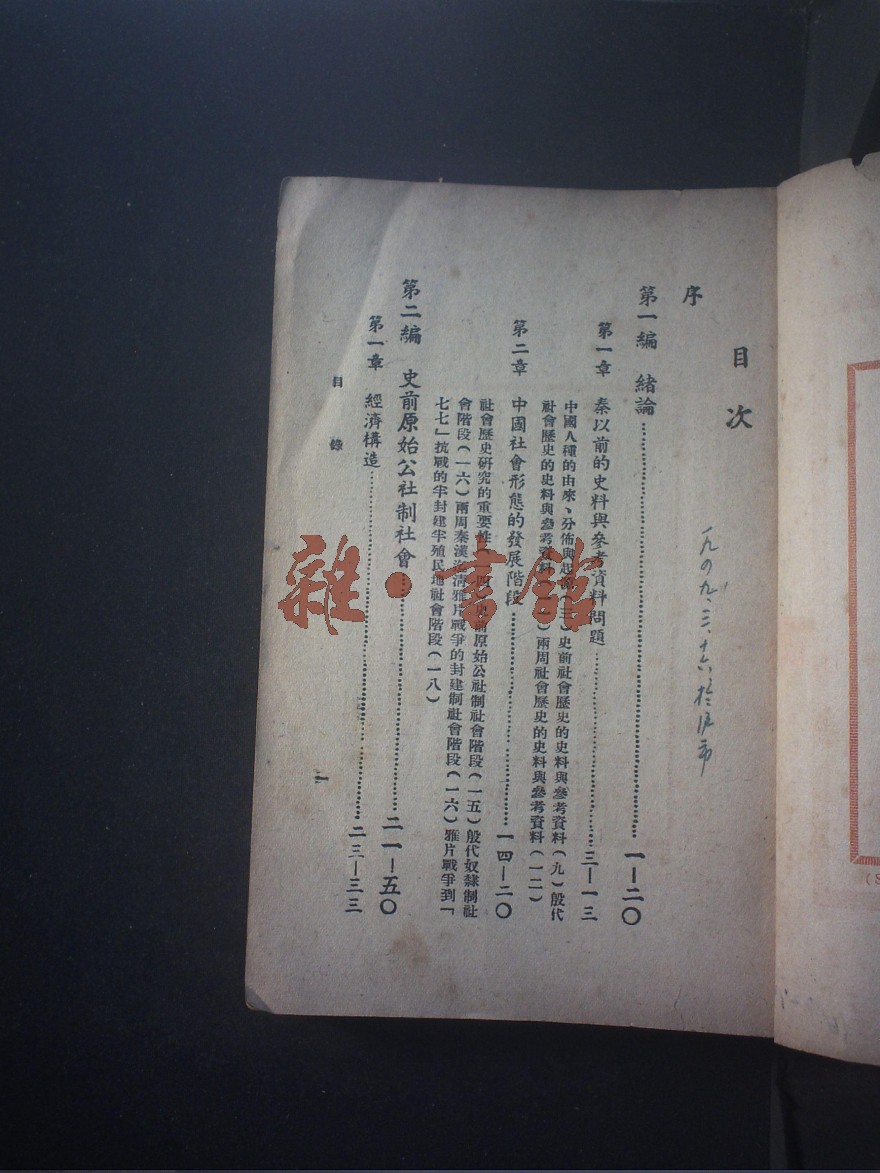 目次
一九四九、三、十六 於滬市
序
第一編 緒論……一—二〇
第一章 秦以前的史料與參考資料問題……三—一三
中國人種的由來、分佈與起源(三)史前社會歷史的史料與參考資料(九)殷代
社會歷史的史料與參考資料 兩周社會歷史的史料與參考資料(一二)
第二章 中國社會形態的發展階段……一四—二〇
社會歷史研究的重要性(一四)史前原始公社制社會階段(一五)殷代奴隸制社
會階段(一六)兩周秦漢 清雅片戰爭的封建制社會階段(一六)雅片戰爭到「
七七」抗戰的半封建半殖民地社會階段(一八)
第二編 史前原始公社制社會……二一—五〇
第一章 經濟構造……二三—三三
目錄
一
雜·書館
(S